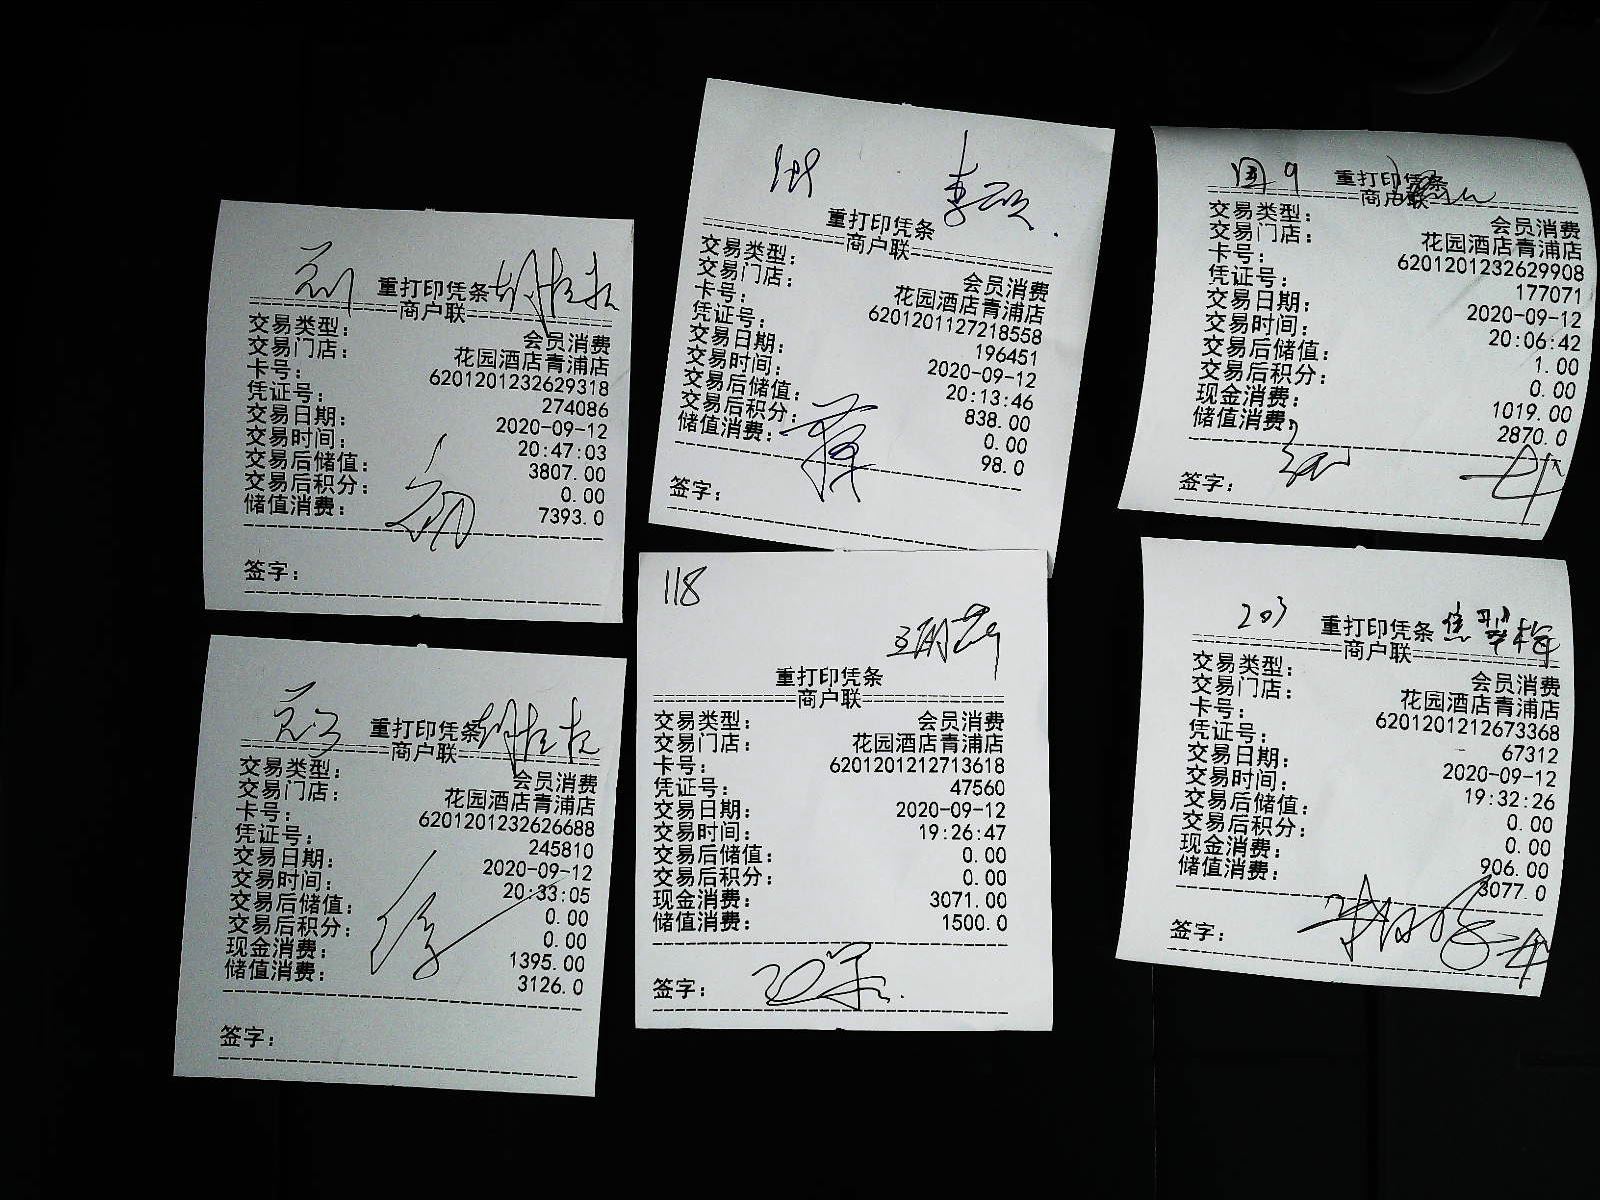 重打印凭条
商户联
交易类型： 会员消费
交易门店： 花园酒店青浦店
卡号： 6201201232629318
凭证号： 274086
交易日期： 2020-09-12
交易时间： 20:47:03
交易后储值： 3807.00
交易后积分： 0.00
储值消费： 7393.0
签字：
重打印凭条
商户联
交易类型： 会员消费
交易门店： 花园酒店青浦店
卡号： 6201201232626688
凭证号： 245810
交易日期： 2020-09-12
交易时间： 20:33:05
交易后储值： 0.00
交易后积分： 0.00
现金消费： 1395.00
储值消费： 3126.0
签字：
重打印凭条
商户联
交易类型： 会员消费
交易门店： 花园酒店青浦店
卡号： 6201201127218558
凭证号： 196451
交易日期： 2020-09-12
交易时间： 20:13:46
交易后储值： 838.00
交易后积分： 0.00
储值消费： 98.0
签字：
118
重打印凭条
商户联
交易类型： 会员消费
交易门店： 花园酒店青浦店
卡号： 6201201212713618
凭证号： 47560
交易日期： 2020-09-12
交易时间： 19:26:47
交易后储值： 0.00
交易后积分： 0.00
现金消费： 3071.00
储值消费： 1500.0
签字：
重打印凭条
商户联
交易类型： 会员消费
交易门店： 花园酒店青浦店
卡号： 6201201232629908
凭证号： 177071
交易日期： 2020-09-12
交易时间： 20:06:42
交易后储值： 1.00
交易后积分： 0.00
现金消费： 1019.00
储值消费： 2870.0
签字：
203
重打印凭条
商户联
交易类型： 会员消费
交易门店： 花园酒店青浦店
卡号： 6201201212673368
凭证号： 67312
交易日期： 2020-09-12
交易时间： 19:32:26
交易后储值： 0.00
交易后积分： 0.00
现金消费： 906.00
储值消费： 3077.0
签字：